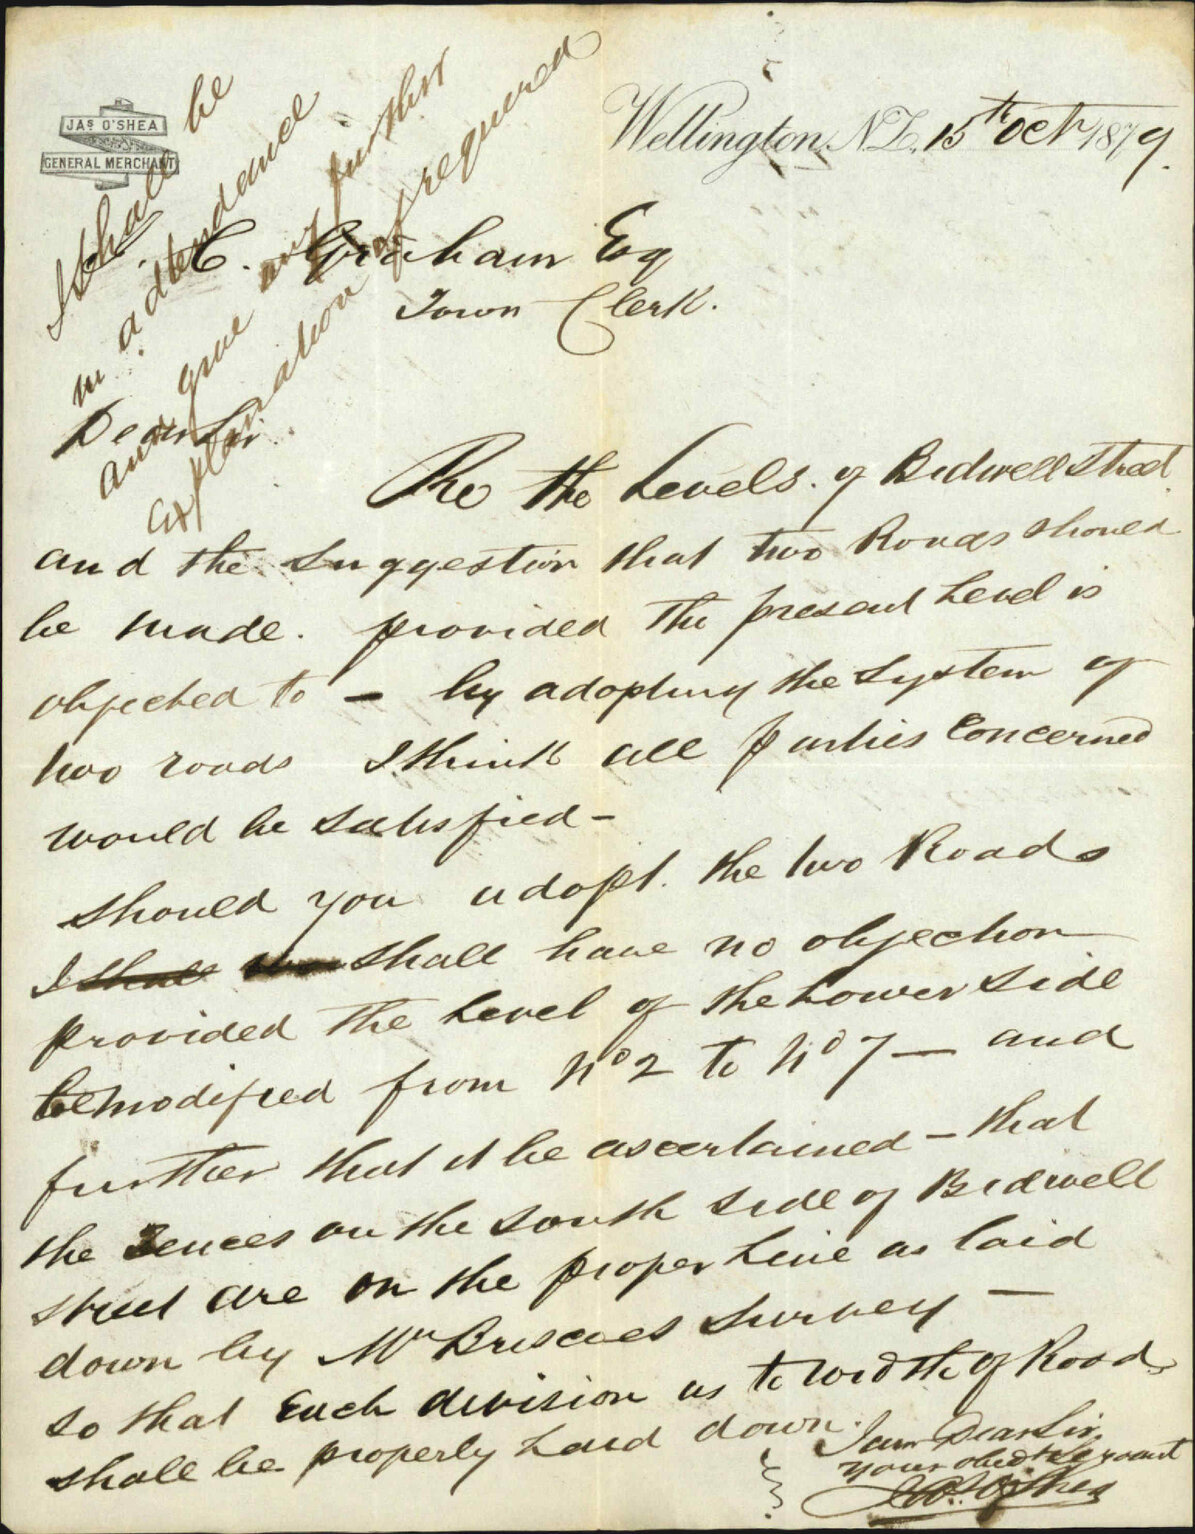 JAS O'SHEA
GENERAL MERCHANT
Wellington, N.Z. 15th Oct 1879.
I shall be
in attendance
and give any further
explanation if required
C. Graham Esq
Town Clerk.
Dear Sir
Re the Levels of Bidwell Street
and the Suggestion that two Roads should
be made. provided the present Level is
objected to – by adopting the System of
two roads I think all parties concerned
would be satisfied –
should you adopt. the two Roads
I shall shall have no objection
provided the Level of the Lower Side
be modified from No 2 to No 7 — and
further that it be ascertained – that
the Fences on the South Side of Bidwell
street are on the proper Line as laid
down by Mr Briscoes Survey —
so that Each division as to width of Road
shall be properly Laid down.
I am Dear Sir
your obedt Servant
Jas. O'Shea